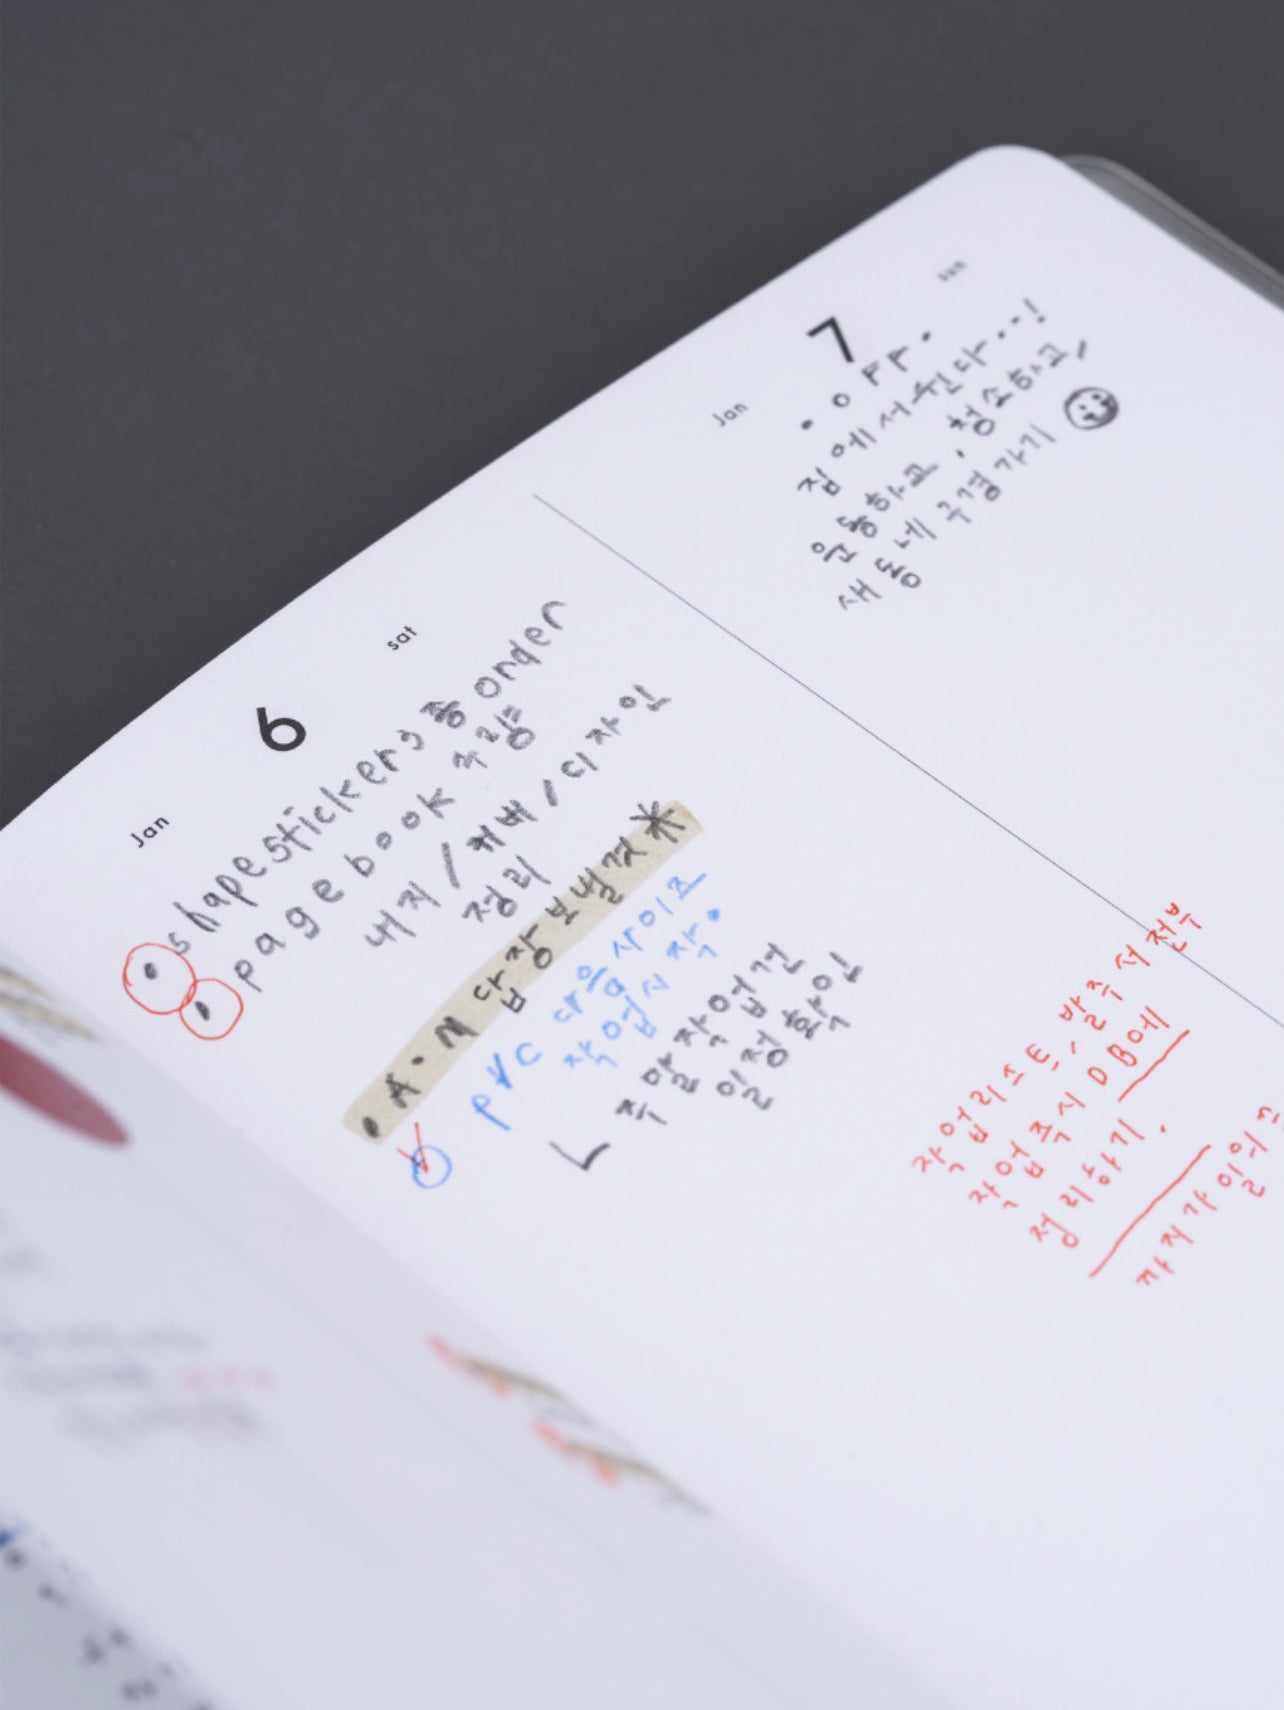 Jan
6
sat
• shapestickers 종 order
• page book 수량
내지 / 커버 / 디자인
정리
• A.M 답장보낼것 *
PVC 다음 사이즈
작업시작.
주말작업건
일정확인
Jan
7
sun
• OFF.
집에서 쉰다..!
운동하고, 청소하고,
새동네 구경가기
작업리스트, 발주서 전부
작업즉시 DB에
정리하기.